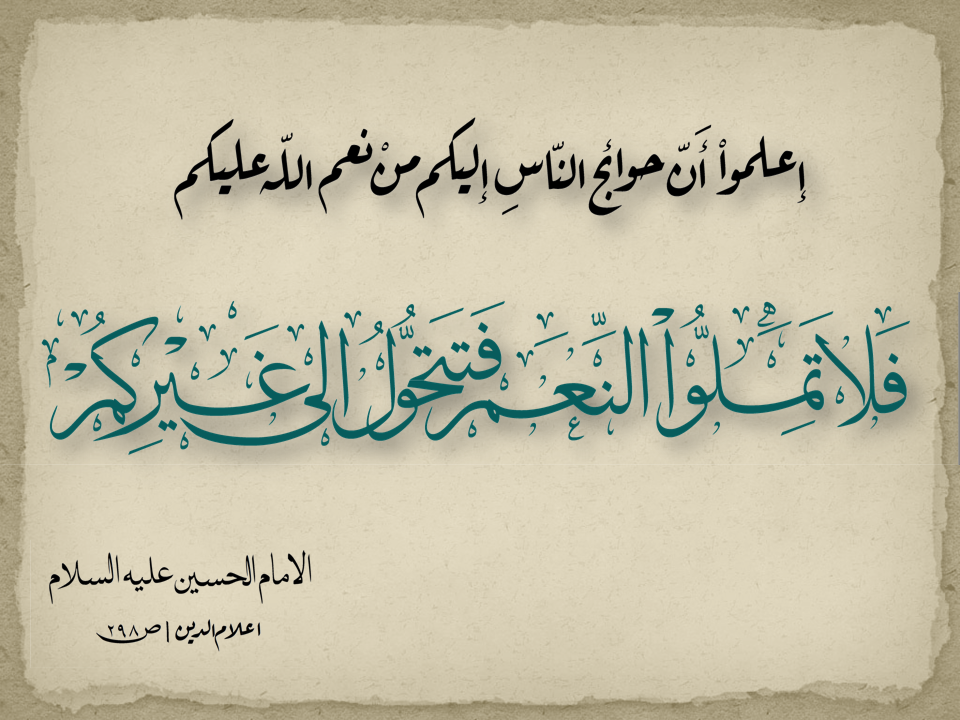 إعلمواْ أَنّ حوائج النّاسِ إليكم منْ نعم اللّه عليكم
فَلاَ تَمِلُّواْ النِّعَم فَتتحَوَّلُ الى غَيْرِكُمْ
الامام الحسين عليه السلام
اعلام الدين | ص ۲۹۸